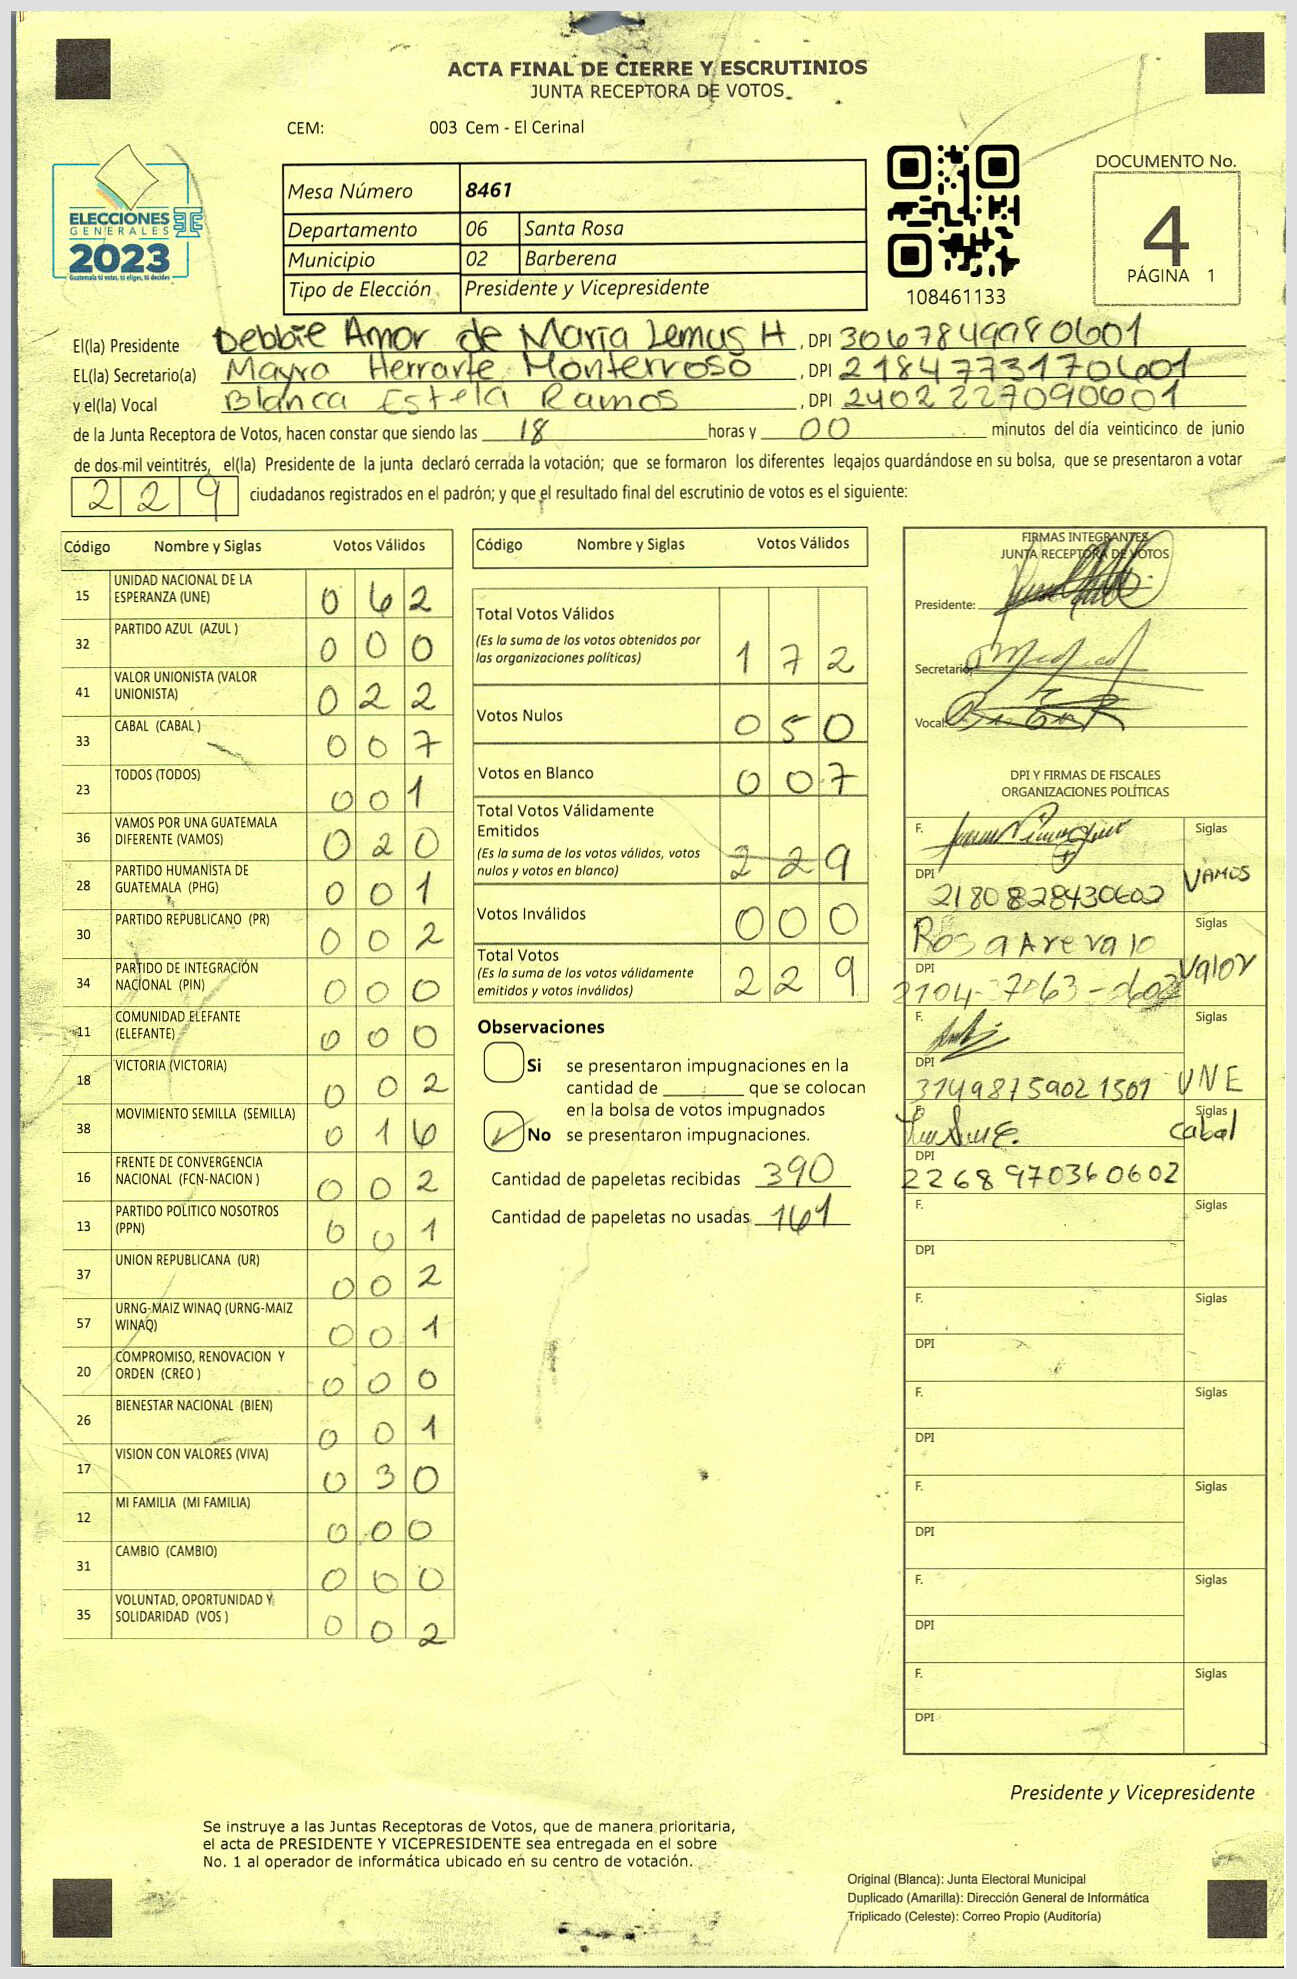 ACTA FINAL DE CIERRE Y ESCRUTINIOS
JUNTA RECEPTORA DE VOTOS
CEM: 003 Cem - El Cerinal
ELECCIONES
GENERALES
2023
Guatemala tú votas, tú eliges, tú decides
Mesa Número 8461
Departamento 06 Santa Rosa
Municipio 02 Barberena
Tipo de Elección Presidente y Vicepresidente
108461133
DOCUMENTO No.
4
PÁGINA 1
El(la) Presidente Debbie Amor de María Lemus H, DPI 3067849980601
EL(la) Secretario(a) Mayra Herrarte Monterroso, DPI 2184773170601
y el(la) Vocal Blanca Estela Ramos, DPI 2402227090601
de la Junta Receptora de Votos, hacen constar que siendo las 18 horas y 00 minutos del día veinticinco de junio
de dos mil veintitrés, el(la) Presidente de la junta declaró cerrada la votación; que se formaron los diferentes legajos guardándose en su bolsa, que se presentaron a votar
229 ciudadanos registrados en el padrón; y que el resultado final del escrutinio de votos es el siguiente:
Código Nombre y Siglas Votos Válidos
15 UNIDAD NACIONAL DE LA ESPERANZA (UNE) 062
32 PARTIDO AZUL (AZUL ) 000
41 VALOR UNIONISTA (VALOR UNIONISTA) 022
33 CABAL (CABAL ) 007
23 TODOS (TODOS) 001
36 VAMOS POR UNA GUATEMALA DIFERENTE (VAMOS) 020
28 PARTIDO HUMANISTA DE GUATEMALA (PHG) 001
30 PARTIDO REPUBLICANO (PR) 002
34 PARTIDO DE INTEGRACIÓN NACIONAL (PIN) 000
11 COMUNIDAD ELEFANTE (ELEFANTE) 000
18 VICTORIA (VICTORIA) 002
38 MOVIMIENTO SEMILLA (SEMILLA) 016
16 FRENTE DE CONVERGENCIA NACIONAL (FCN-NACION ) 002
13 PARTIDO POLITICO NOSOTROS (PPN) 001
37 UNION REPUBLICANA (UR) 002
57 URNG-MAIZ WINAQ (URNG-MAIZ WINAQ) 001
20 COMPROMISO, RENOVACION Y ORDEN (CREO ) 000
26 BIENESTAR NACIONAL (BIEN) 001
17 VISION CON VALORES (VIVA) 030
12 MI FAMILIA (MI FAMILIA) 000
31 CAMBIO (CAMBIO) 000
35 VOLUNTAD, OPORTUNIDAD Y SOLIDARIDAD (VOS ) 002
Código Nombre y Siglas Votos Válidos
Total Votos Válidos
(Es la suma de los votos obtenidos por
las organizaciones políticas) 172
Votos Nulos 050
Votos en Blanco 007
Total Votos Válidamente
Emitidos
(Es la suma de los votos válidos, votos
nulos y votos en blanco) 229
Votos Inválidos 000
Total Votos
(Es la suma de los votos válidamente
emitidos y votos inválidos) 229
Observaciones
Si se presentaron impugnaciones en la
cantidad de ______ que se colocan
en la bolsa de votos impugnados
No se presentaron impugnaciones.
Cantidad de papeletas recibidas 390
Cantidad de papeletas no usadas 161
FIRMAS INTEGRANTES
JUNTA RECEPTORA DE VOTOS
Presidente:
Secretario:
Vocal:
DPI Y FIRMAS DE FISCALES
ORGANIZACIONES POLÍTICAS
F. Siglas
DPI 2180828430602 VAMOS
Rosa Arevalo Siglas
DPI Valor
F. Siglas
DPI 31498759021501 UNE
F. Siglas
Cabal
DPI 2268970360602
F. Siglas
DPI
F. Siglas
DPI
F. Siglas
DPI
F. Siglas
DPI
F. Siglas
DPI
F. Siglas
DPI
Presidente y Vicepresidente
Se instruye a las Juntas Receptoras de Votos, que de manera prioritaria,
el acta de PRESIDENTE Y VICEPRESIDENTE sea entregada en el sobre
No. 1 al operador de informática ubicado en su centro de votación.
Original (Blanca): Junta Electoral Municipal
Duplicado (Amarilla): Dirección General de Informática
Triplicado (Celeste): Correo Propio (Auditoría)